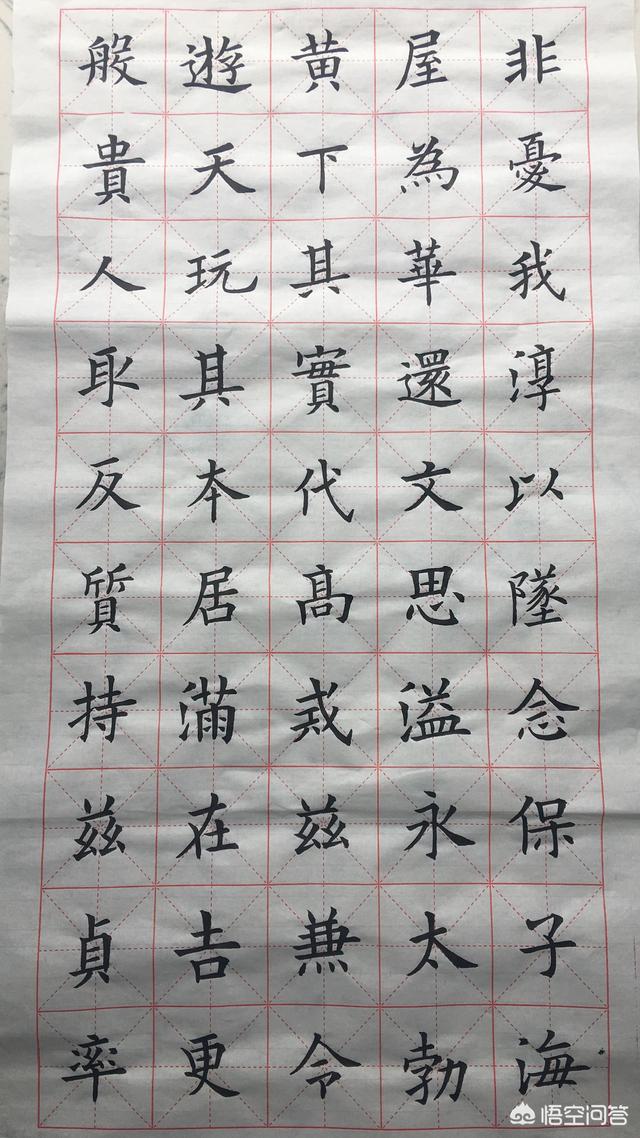 般遊黄屋非
貴天下為憂
人玩其華我
取其實還淳
反本代文以
質居髙思墜
持滿戒溢念
兹在兹永保
貞吉兼太子
率更令勃海
悟空问答